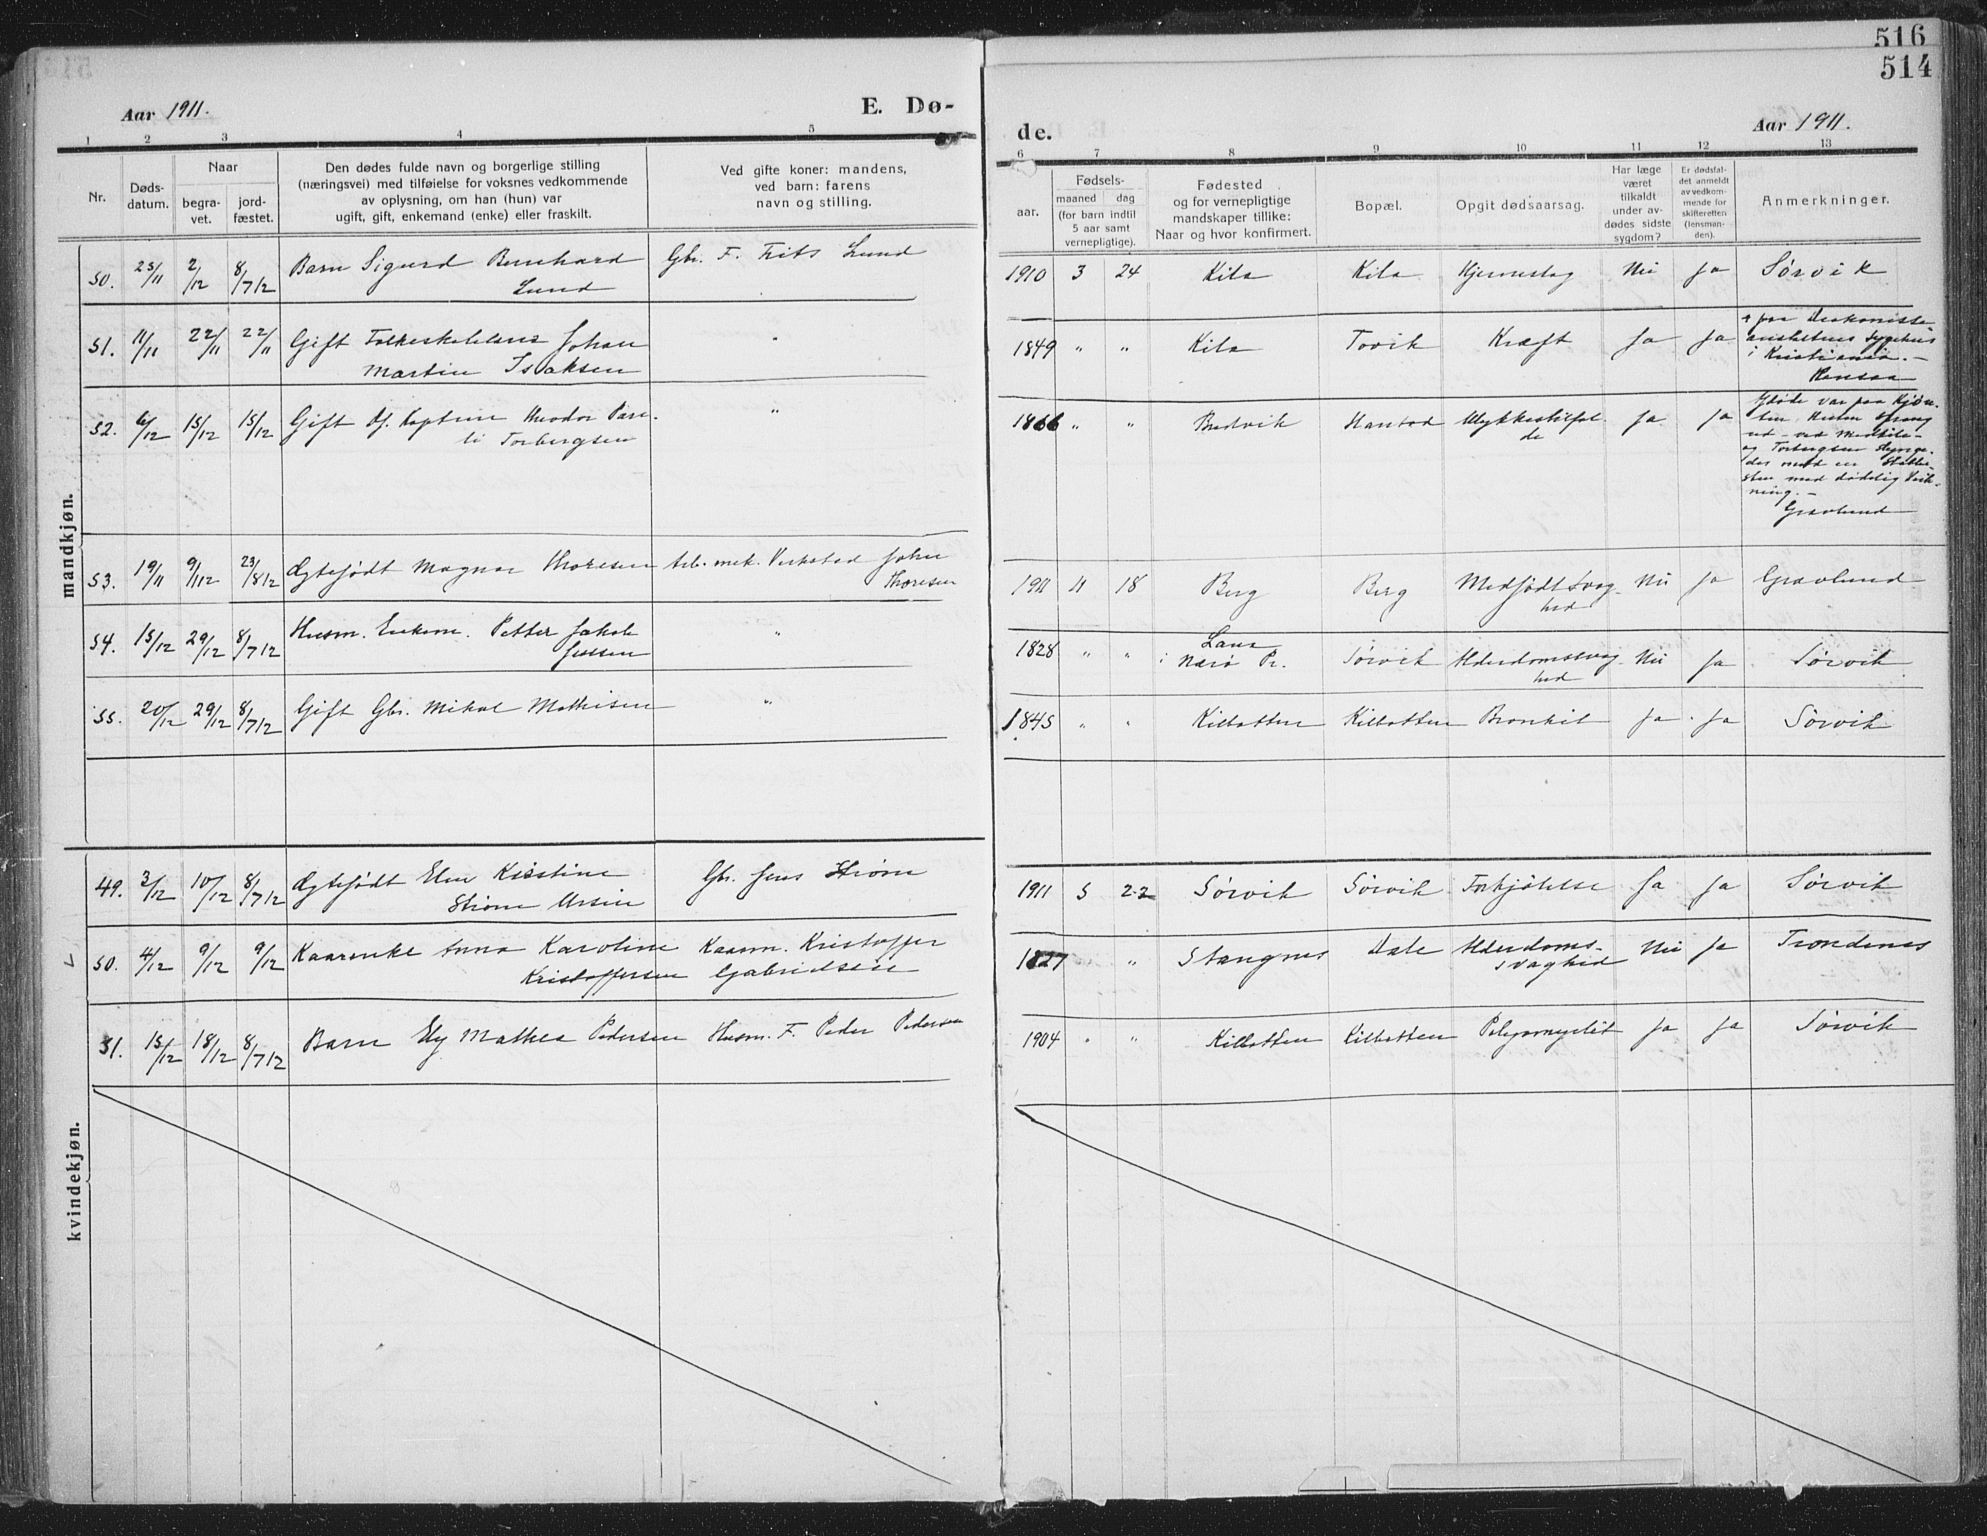 516
514
Aar 1911.
E. Dø-
de.
Aar 1911.
1 2 3 4 5
6 7 8 9 10 11 12 13
Nr.
Døds-
datum.
Naar
begra-
vet.
jord-
fæstet.
Den dødes fulde navn og borgerlige stilling
(næringsvei) med tilføielse for voksnes vedkommende
av oplysning, om han (hun) var
ugift, gift, enkemand (enke) eller fraskilt.
Ved gifte koner: mandens,
ved barn: farens
navn og stilling.
aar.
Fødsels-
maaned dag
(for barn indtil
5 aar samt
vernepligtige).
Fødested
og for vernepligtige
mandskaper tillike:
Naar og hvor konfirmert.
Bopæl.
Opgit dødsaarsag.
Har læge
været
tilkaldt
under av-
dødes sidste
sygdom?
Er dødsfal-
det anmeldt
av vedkom-
mende for
skifteretten
(lensman-
den).
Anmerkninger.
mandkjøn.
50. 25/11 2/12 8/7 12 Barn Sigurd Bernhard Gbr. F. Frits Lund 1910 3 24 Kila Kila Hjerneslag Nei Ja Sørvik
Lund
51. 11/11 22/11 22/11 Gift Johan " 1849 " " Kila Tovik Kræft Ja Ja
Martin Isaksen
+ paa Diakonisse-
anstaltens Sygehus
i Kristiania. —
52. 6/12 15/12 15/12 Gift Theodor " 1866 " " Ulykkestilfæl- Ja Ja
Torbergsen
de
Gravlund
53. 19/11 9/1 12 23/8 12 Ægtefødt Magnar Thoresen Arb. mek. Verksted John 1911 11 18 Berg Berg Medfødt Svag- Nei Ja Gravlund
Thoresen
hed
54. 15/12 29/12 8/7 12 Husm. Enkem. Petter Jakob " 1828 " " i Nærø Pr. Sørvik Alderdomssvag- Nei Ja Sørvik
hed
55. 20/12 29/12 8/7 12 Gift Gbr. Mikal Mathisen " 1845 " " Kilbotten Kilbotten Bronkit Ja Ja Sørvik
kvindekjøn.
49. 3/12 10/12 8/7 12 Ægtefødt Kristine Gbr. Jens Strøm 1911 5 22 Sørvik Sørvik Forkjølelse Ja Ja Sørvik
Strøm Ursin
50. 4/12 9/12 9/12 Kaarenke Anna Karoline Kaarm. Kristoffer 1827 " Stangnes Dale Alderdoms- Nei Ja Trondenes
Kristoffersen Gabrielsen
svaghed
51. 15/12 18/12 8/7 12 Barn Ely Mathea Pedersen Husm. F. Peder Pedersen 1904 " " Kilbotten Kilbotten Ja Ja Sørvik